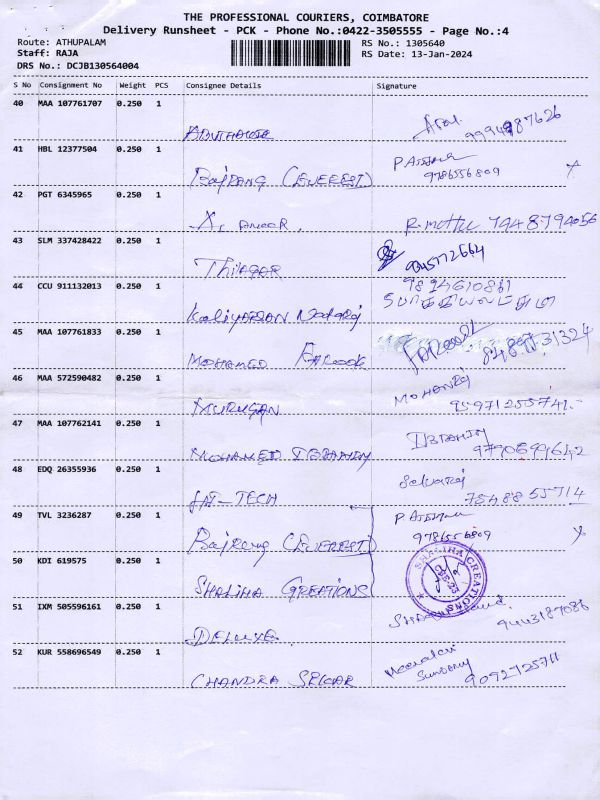 THE PROFESSIONAL COURIERS, COIMBATORE
Delivery Runsheet - PCK - Phone No.:0422-3505555 - Page No.:4
Route: ATHUPALAM
Staff: RAJA
DRS No.: DCJB130564004
RS No.: 1305640
RS Date: 13-Jan-2024
S No Consignment No Weight PCS Consignee Details Signature
40 MAA 107761707 0.250 1
41 HBL 12377504 0.250 1
9786556809
Bajrang (EVEREST)
42 PGT 6345965 0.250 1
43 SLM 337428422 0.250 1
Thiyagar
44 CCU 911132013 0.250 1
Kaliyappan Nataraj
45 MAA 107761833 0.250 1
MOHAMED FAROOK
46 MAA 572590482 0.250 1
MURUGAN
47 MAA 107762141 0.250 1
IBRAHIM
MOHAMED IBRAHIM
48 EDQ 26355936 0.250 1
Selvaraj
HI-TECH
7548855714
49 TVL 3236287 0.250 1
9786556809
Bajrang (EVEREST)
50 KDI 619575 0.250 1
SHALIHA CREATIONS
SHALIHA CREATIONS
51 IXM 505596161 0.250 1
9443187086
DELUXE
52 KUR 558696549 0.250 1
Meenatchi
Sundary
9092725711
CHANDRA SEKAR